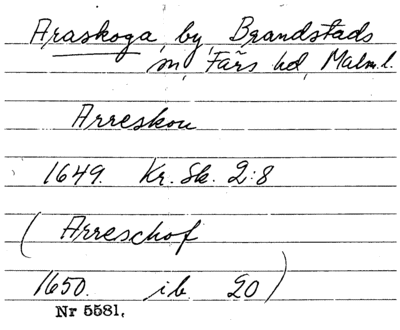 Araskoga, by, Brandstads
sn, Färs hd, Malm.l.
Arreskou
1649. Kr. Sk. 2:8
(Arreschof
1650. ib. 20)
Nr 5581.